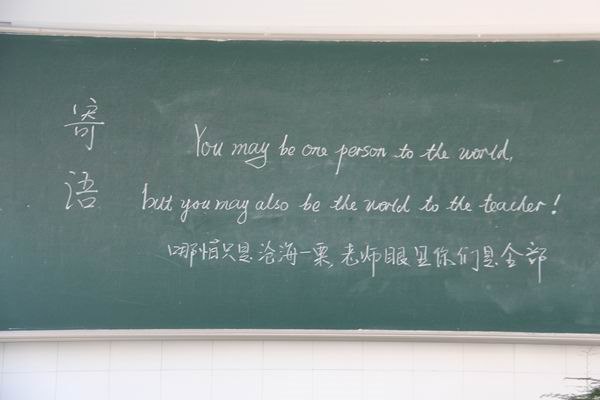 寄语
You may be one person to the world,
but you may also be the world to the teacher!
哪怕只是沧海一粟,老师眼里你们是全部